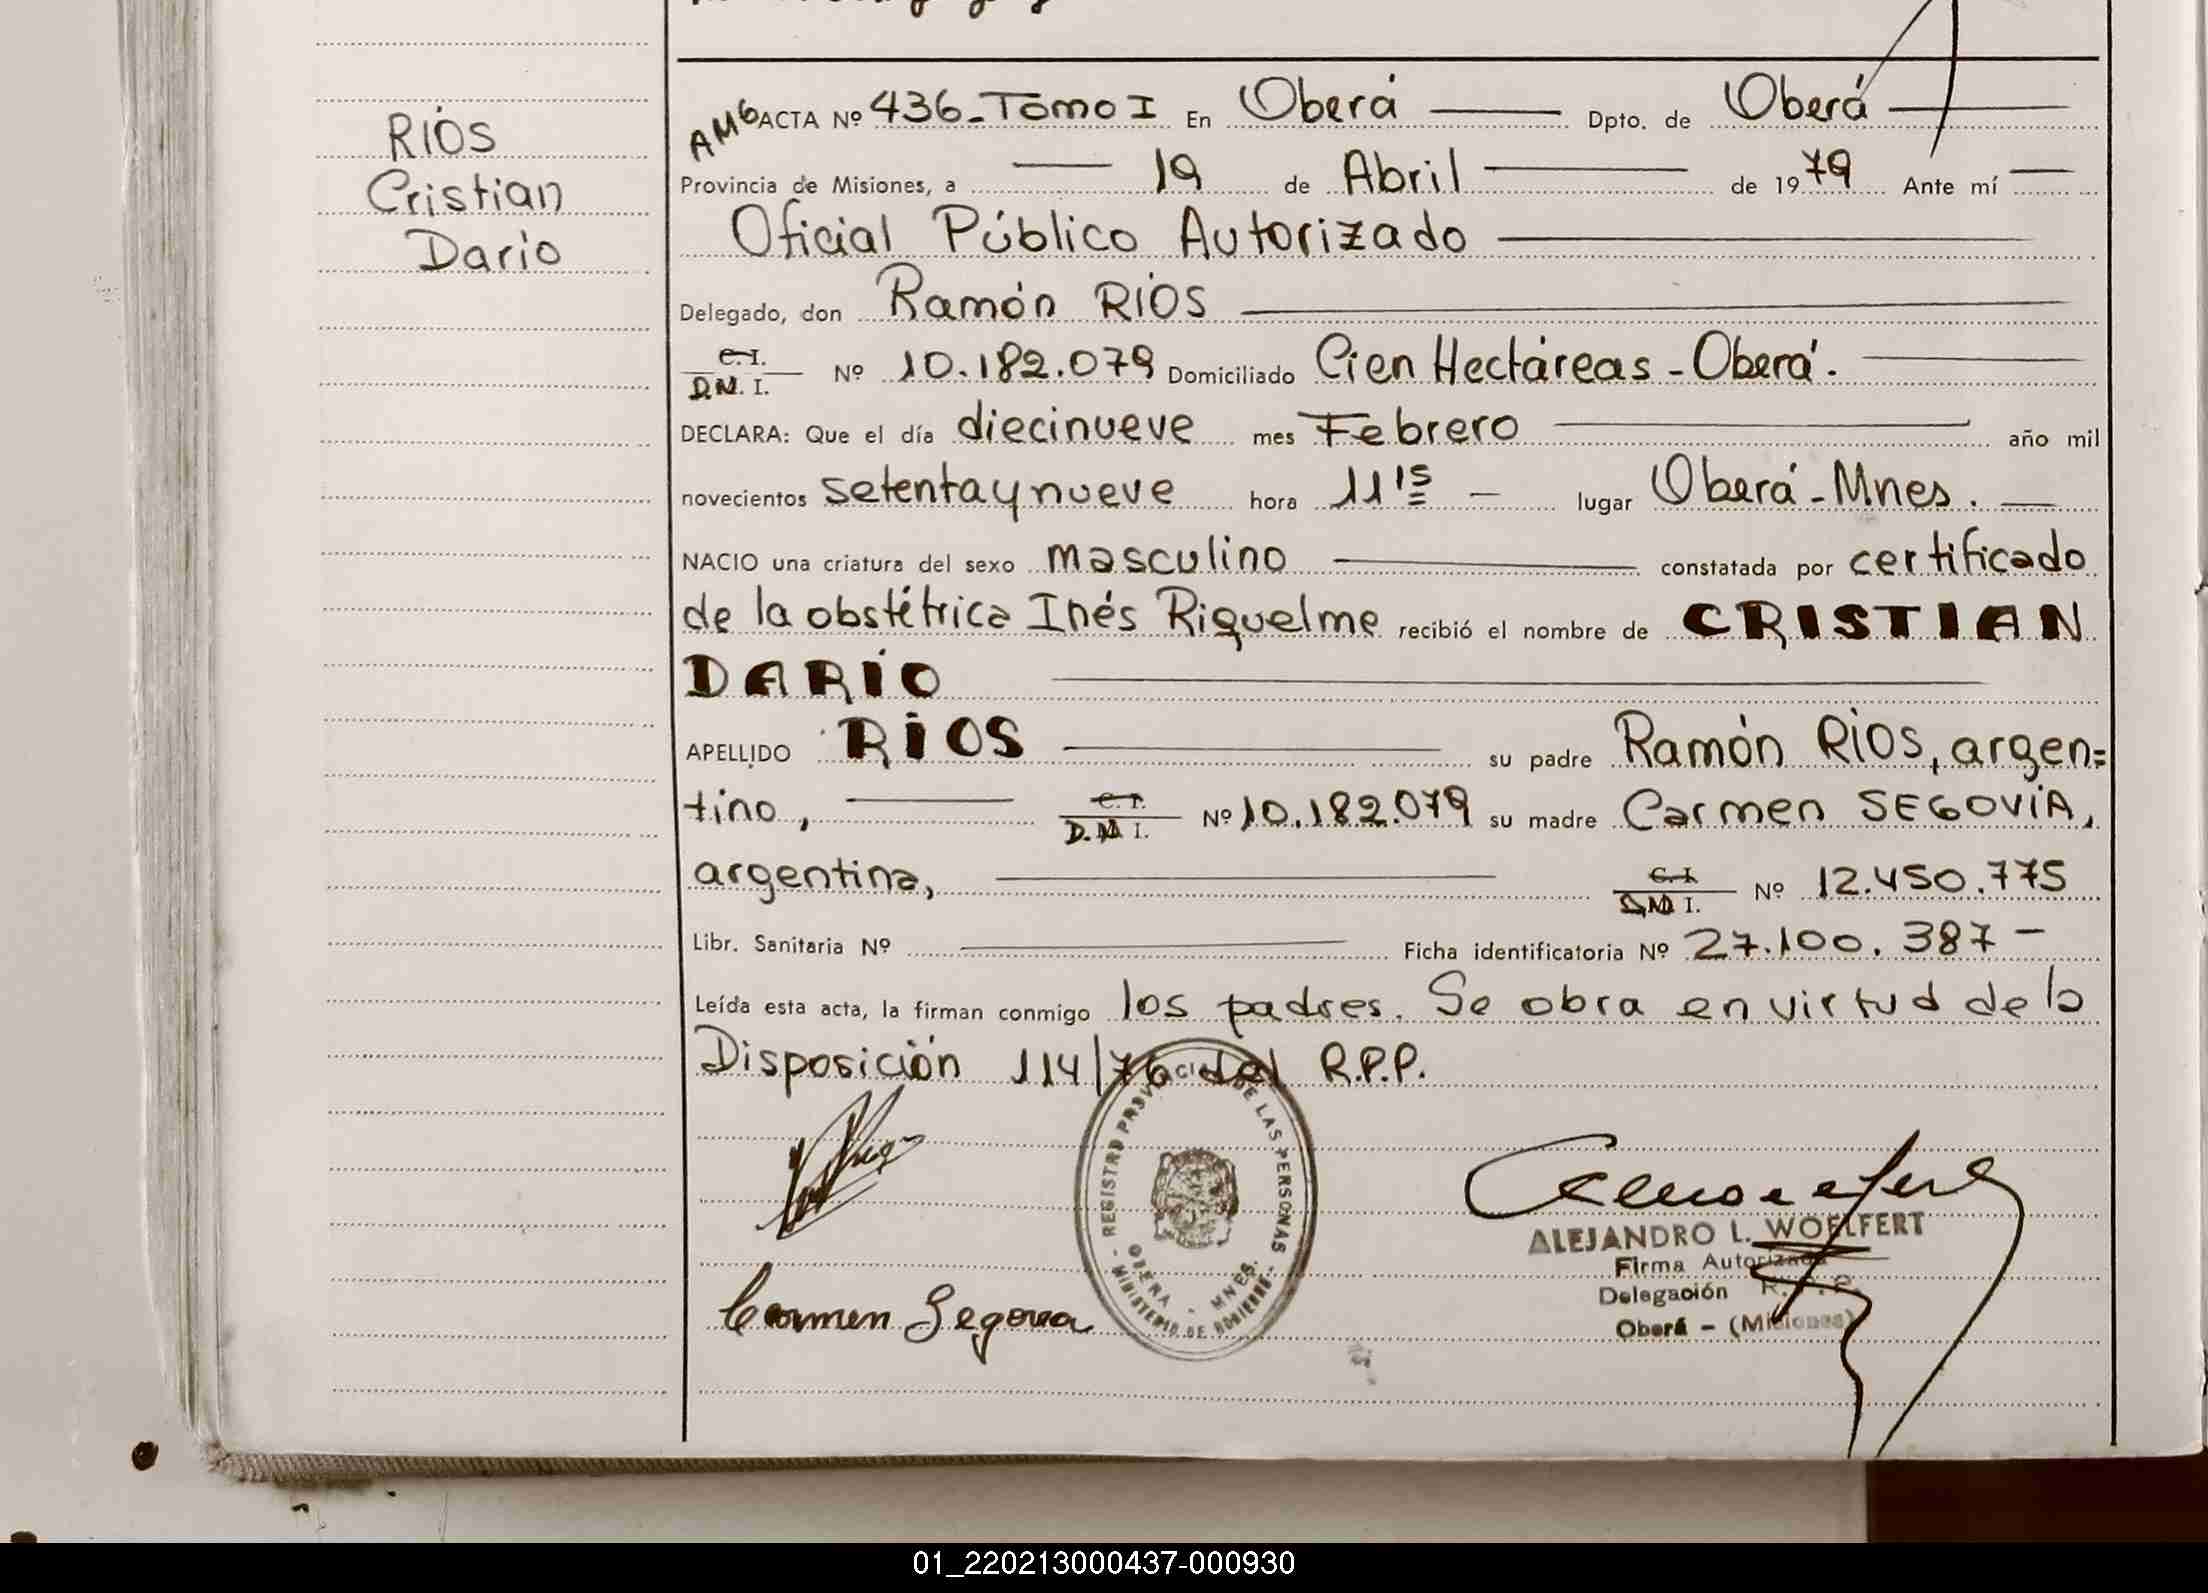 RÍOS
Cristian
Darío
AMG ACTA Nº 436-Tomo I En Oberá Dpto. de Oberá
Provincia de Misiones, a 19 de Abril de 1979 Ante mí
Oficial Público Autorizado
Delegado, don Ramón RÍOS
C.I.
D.N.I. Nº 10.182.079 Domiciliado Cien Hectáreas-Oberá.
DECLARA: Que el día diecinueve mes Febrero año mil
novecientos setenta y nueve hora 11 15 lugar Oberá-Mnes.
NACIO una criatura del sexo masculino constatada por certificado
de la obstétrica Inés Riquelme recibió el nombre de CRISTIAN
DARÍO
APELLIDO RÍOS su padre Ramón RÍOS, argen=
tino, C.I. D.N.I. Nº 10.182.079 su madre Carmen SEGOVIA,
argentina, C.I. D.N.I. Nº 12.450.775
Libr. Sanitaria Nº Ficha identificatoria Nº 27.100.387-
Leída esta acta, la firman conmigo los padres. Se obra en virtud de la
Disposición 114/76 del R.P.P.
REGISTRO PROVINCIAL DE LAS PERSONAS
OBERA - MNES.
MINISTERIO DE GOBIERNO
Carmen Segovia
ALEJANDRO L. WOELFERT
Firma Autorizada
Delegación R.P.P.
Oberá - (Misiones)
01_220213000437-000930